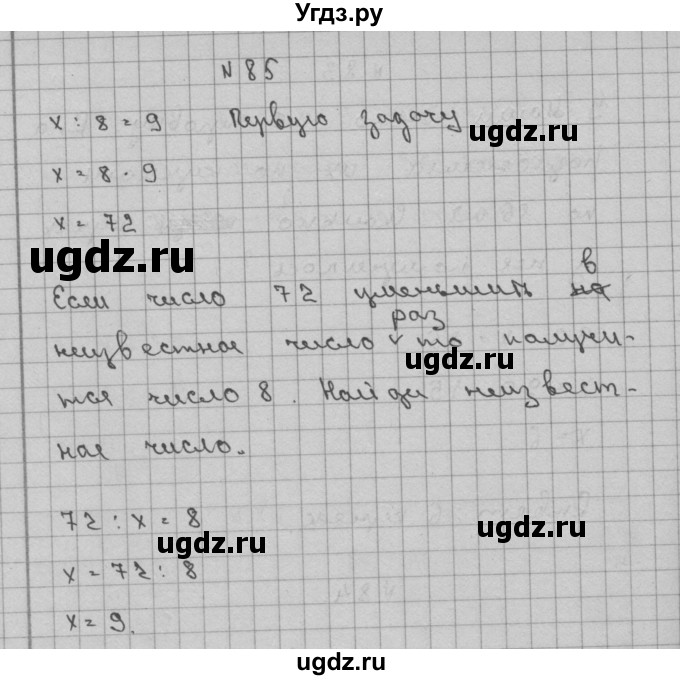 Угдз.ру
N 85
x : 8 = 9 Первую задачу
ugdz.ru
x = 8 · 9
x = 72
ugdz.ru
Если число 72 уменьшить на в
неизвестное число раз то получи-
тся число 8. Найди неизвест-
ное число.
72 : x = 8
ugdz.ru
ugdz.ru
x = 72 : 8
x = 9.
ugdz.ru